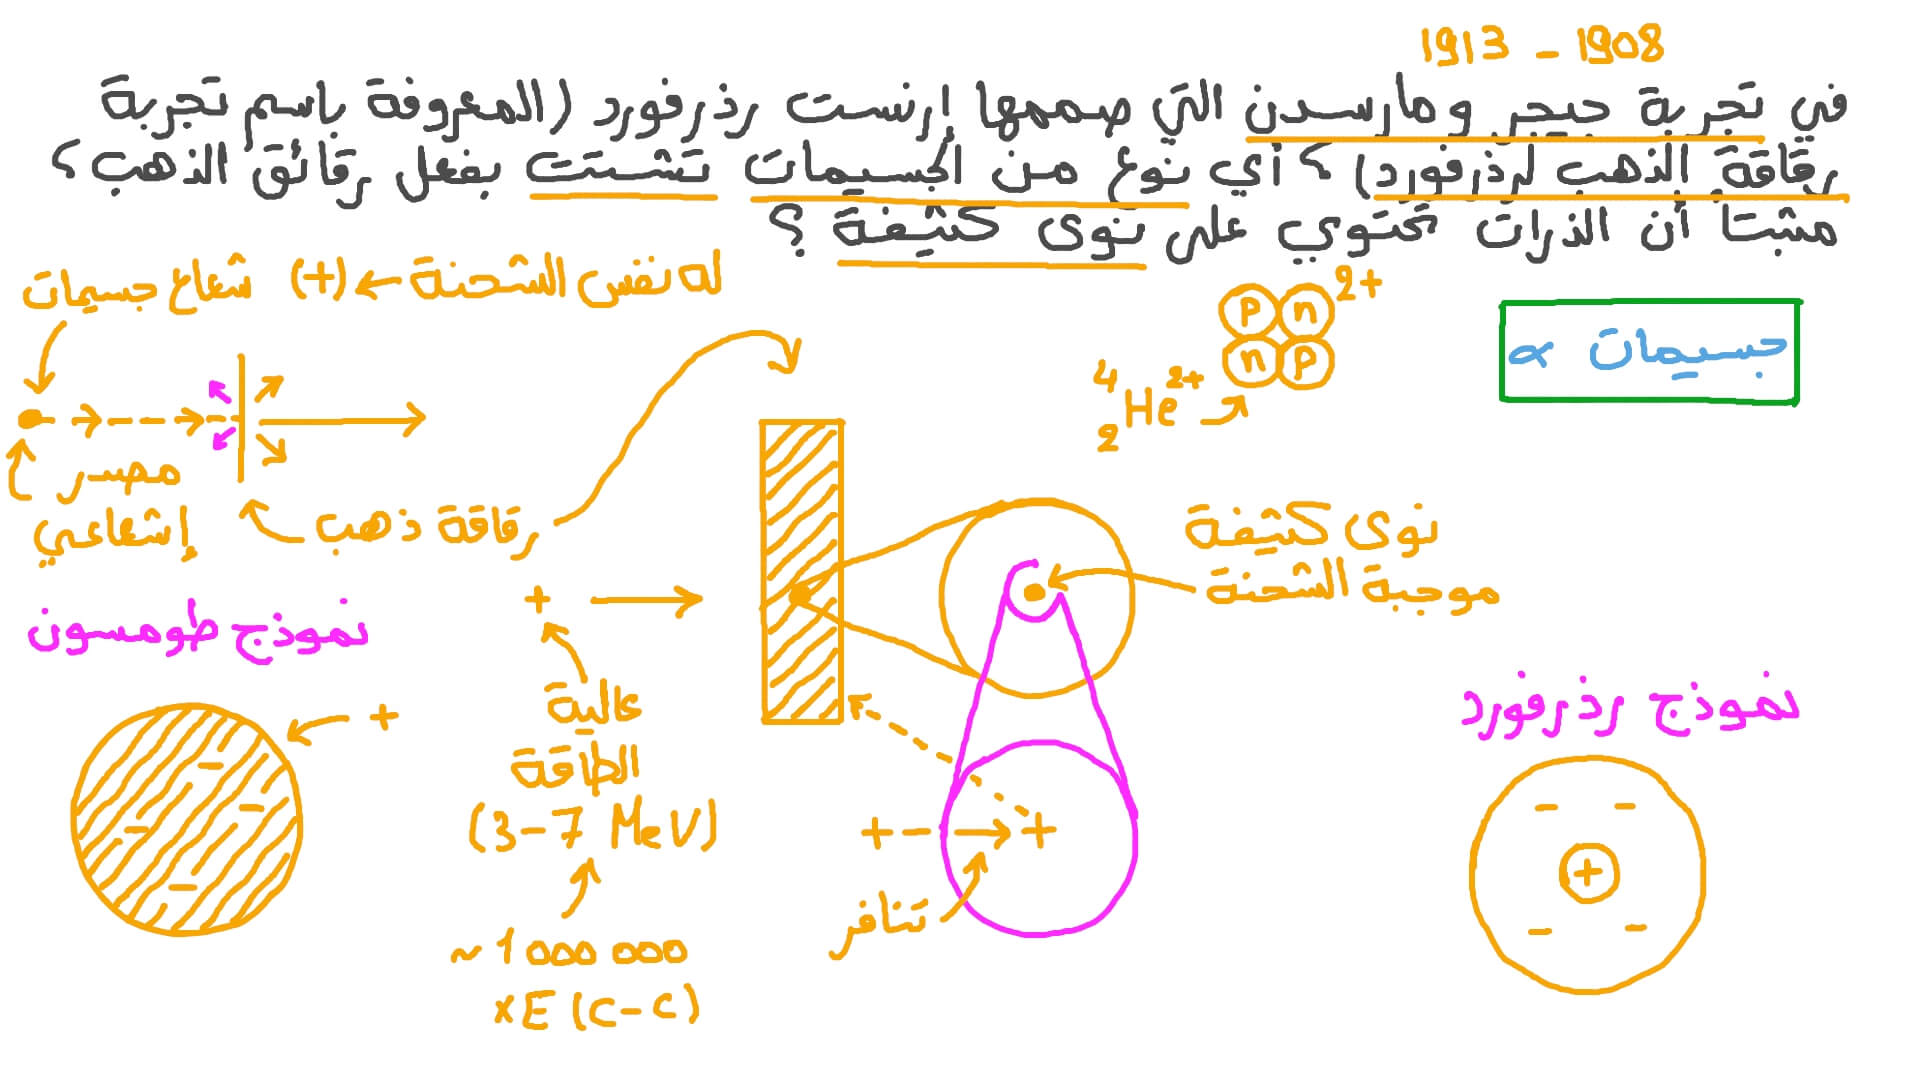 1913 - 1908
في تجربة جيجر ومارسدن التي صممها إرنست رذرفورد (المعروفة باسم تجربة
رقاقة الذهب لرذرفورد)، أي نوع من الجسيمات تشتت بفعل رقائق الذهب؟
مثبتا أن الذرات تحتوي على نوى كثيفة؟
له نفس الشحنة ← (+) شعاع جسيمات
p n 2+
n p
جسيمات α
⁴₂He²⁺
مصدر
إشعاعي
رقاقة ذهب
نوى كثيفة
موجبة الشحنة
+
نموذج طومسون
نموذج رذرفورد
+
عالية
الطاقة
(3-7 MeV)
+ +
تنافر
+
~1 000 000
xE (C-C)